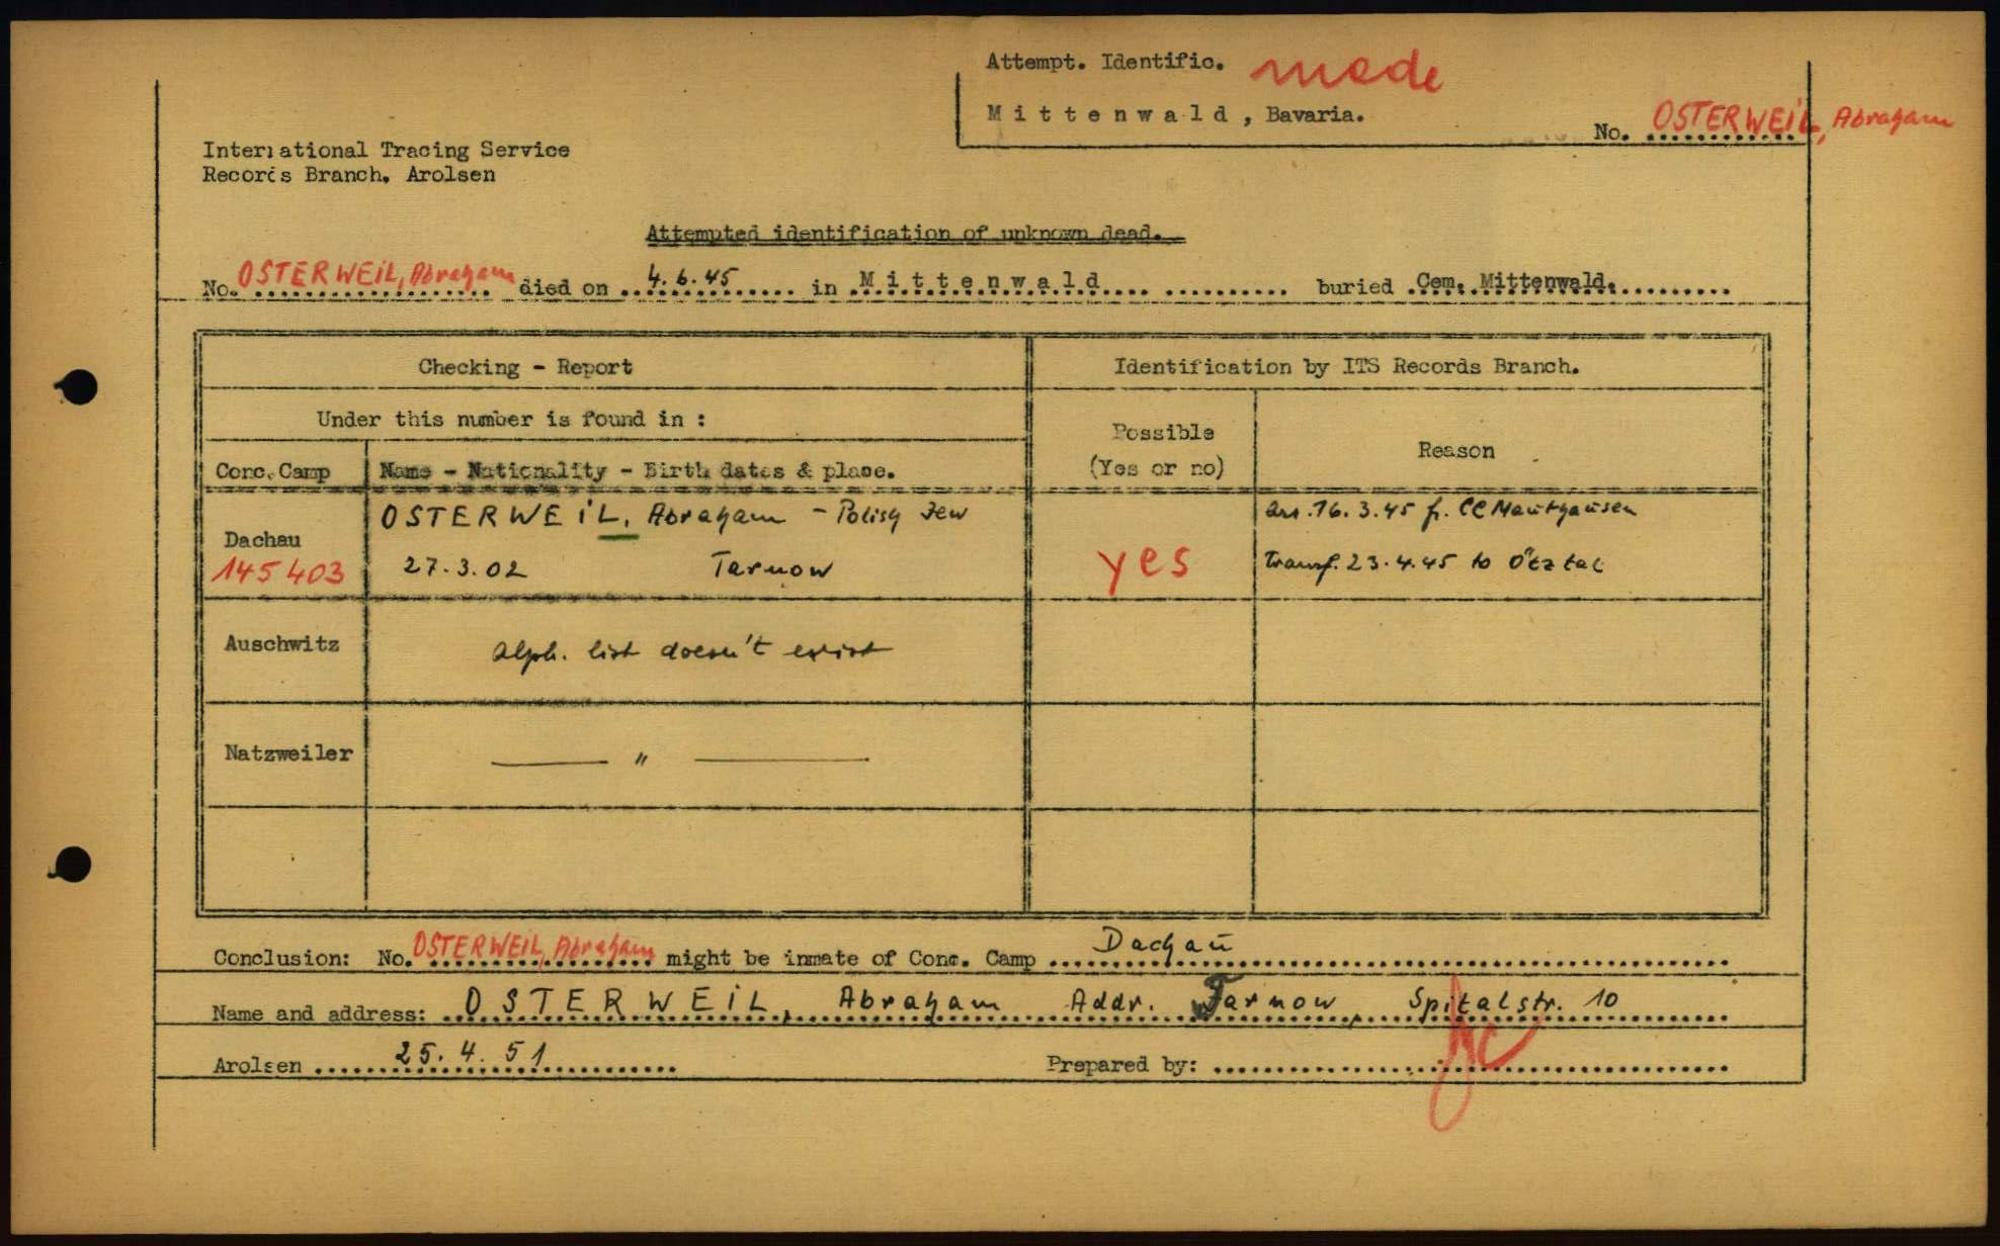 Attempt. Identific. made
Mittenwald, Bavaria.
No. OSTERWEIL, Abraham
International Tracing Service
Records Branch, Arolsen
Attempted identification of unknown dead.
No. OSTERWEIL, Abraham died on 4.6.45 in Mittenwald buried Cem. Mittenwald.
Checking - Report
Identification by ITS Records Branch.
Under this number is found in :
Possible
(Yes or no)
Reason
Conc. Camp
Name - Nationality - Birth dates & place.
Dachau
145403
OSTERWEIL, Abraham - Polish Jew
27.3.02 Tarnow
yes
arr. 16.3.45 fr. CC Mauthausen
transf. 23.4.45 to Ötztal
Auschwitz
alph. list doesn't exist
Natzweiler
— " —
Conclusion: No. OSTERWEIL, Abraham might be inmate of Conc. Camp Dachau
Name and address: OSTERWEIL, Abraham Addr. Tarnow, Spitalstr. 10
Arolsen 25.4.51
Prepared by: